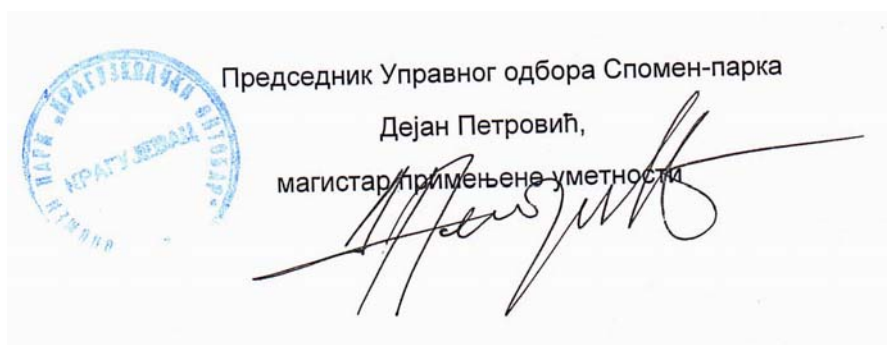 Председник Управног одбора Спомен-парка
Дејан Петровић,
магистар примењене уметности
СПОМЕН ПАРК „КРАГУЈЕВАЧКИ ОКТОБАР“
КРАГУЈЕВАЦ